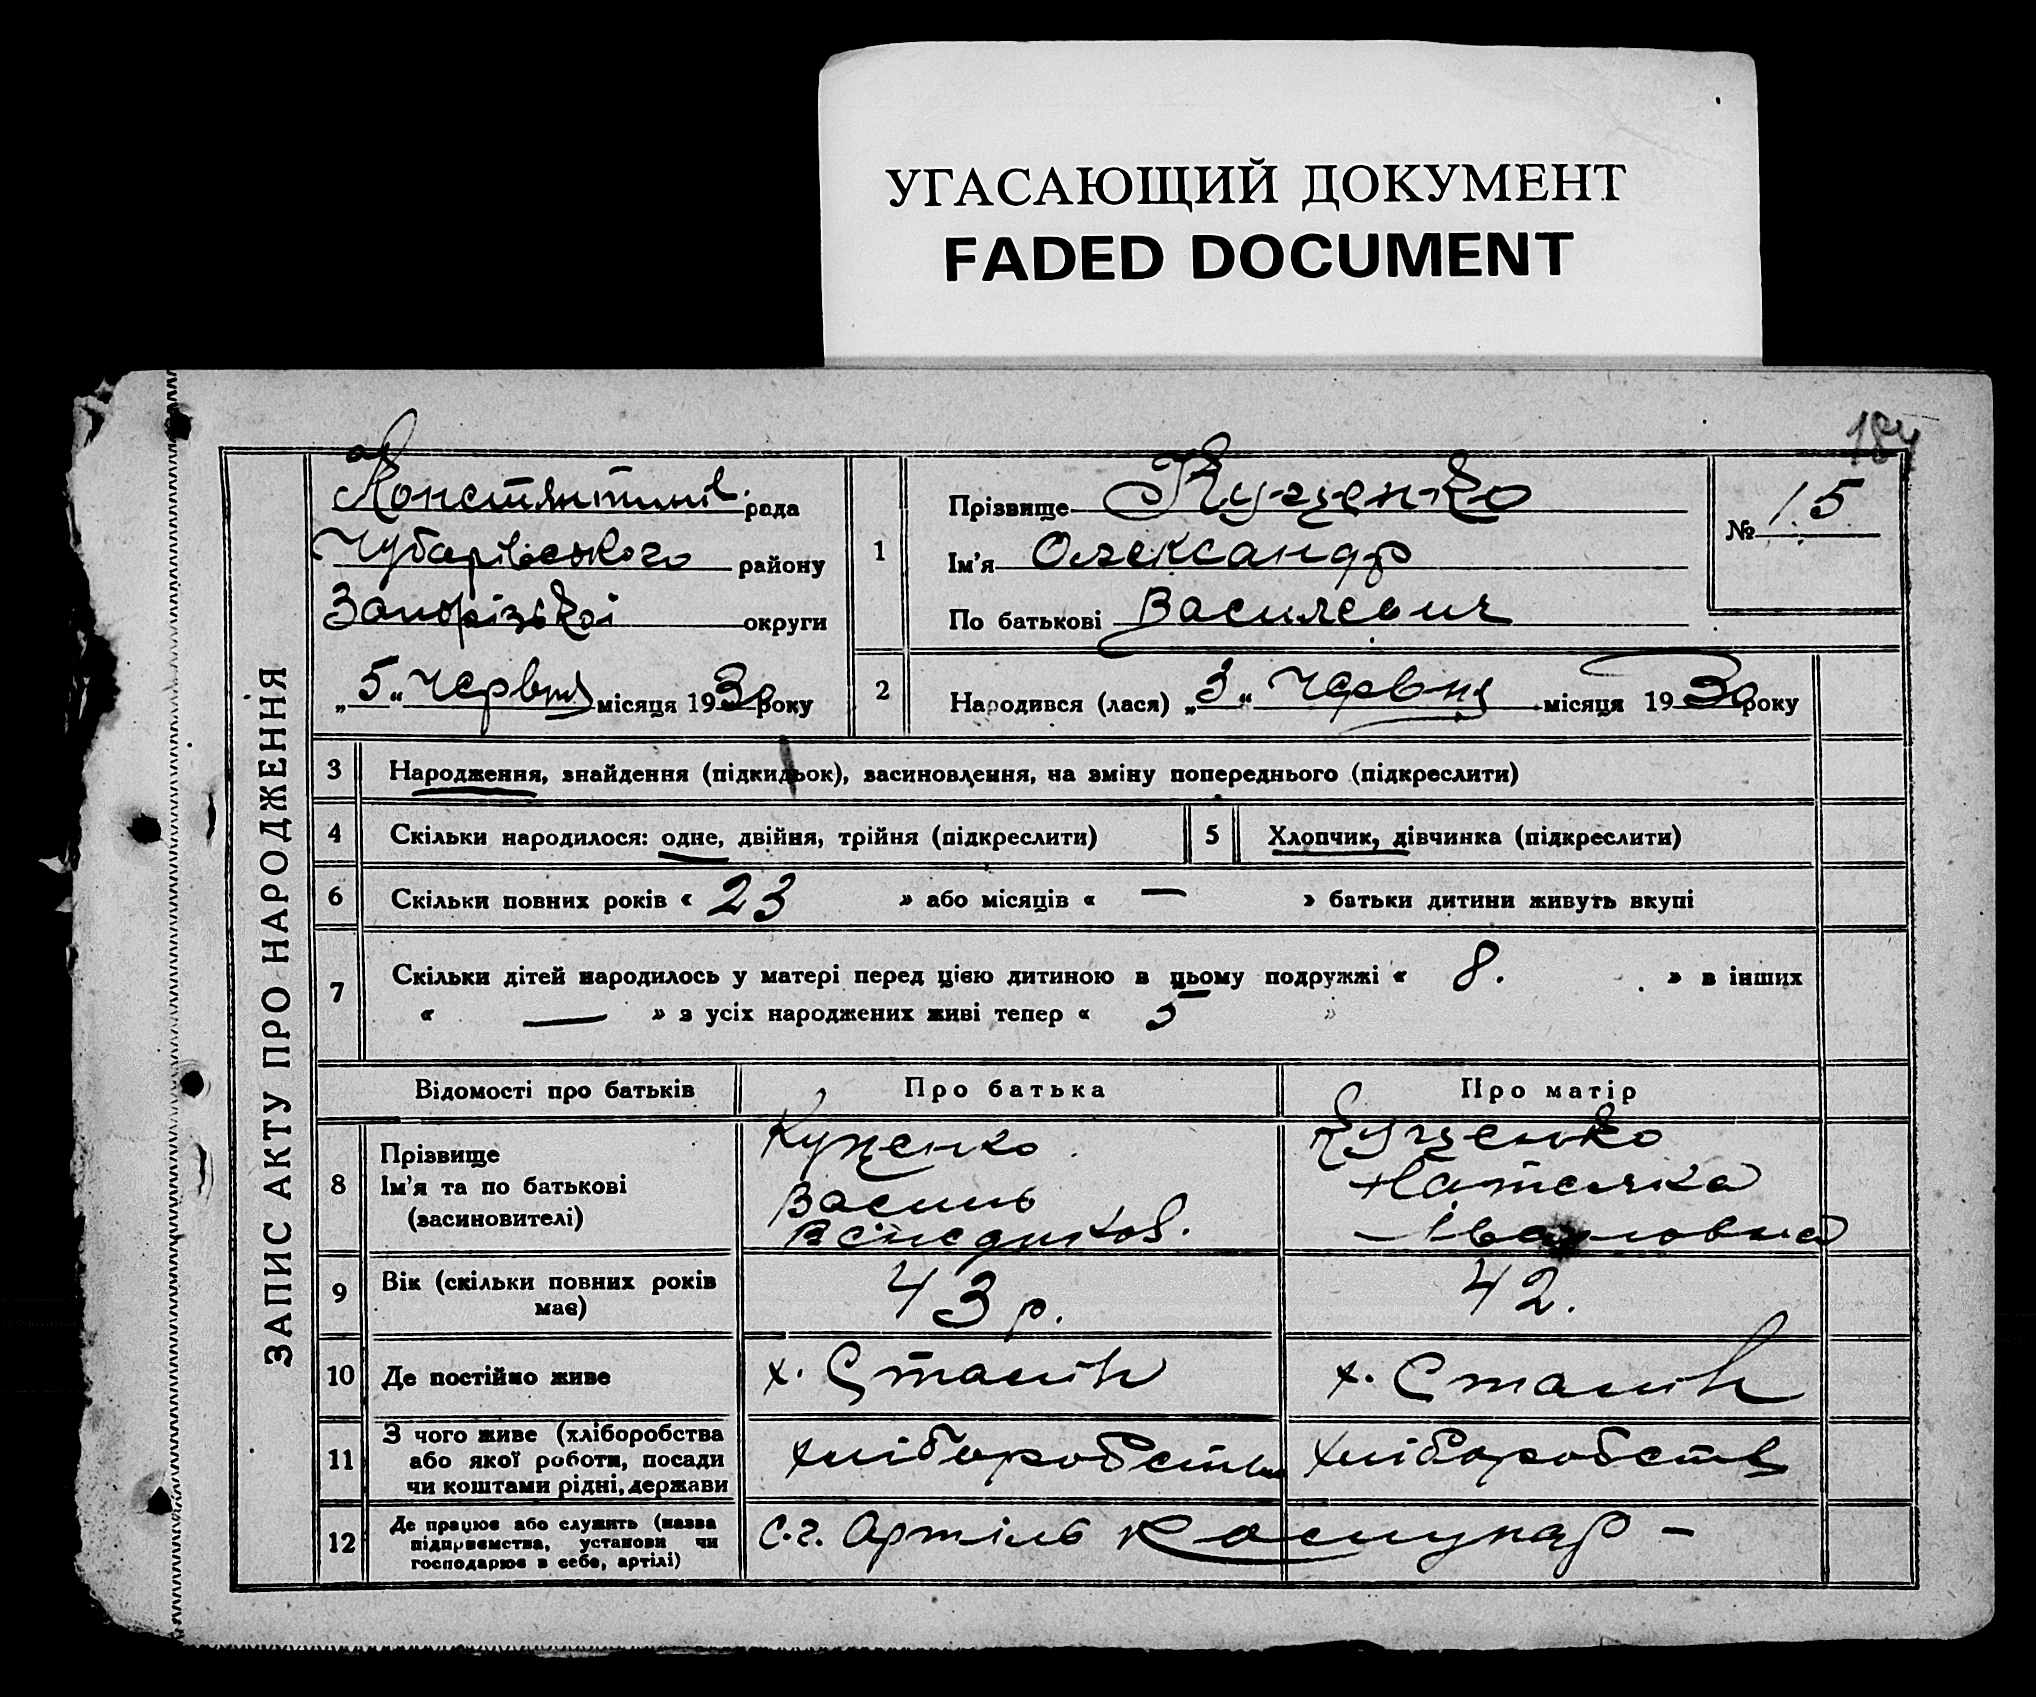 УГАСАЮЩИЙ ДОКУМЕНТ
FADED DOCUMENT
184
ЗАПИС АКТУ ПРО НАРОДЖЕННЯ
Констянтинів. рада
Чубарівського району
Запорізької округи
„5„ Червня місяця 1930 року
1
Прізвище Куценко
Ім'я Олександр
По батькові Василевич
№ 15
2
Народився (лася) „3„ Червня місяця 1930 року
3 Народження, знайдення (підкидьок), засиновлення, на зміну попереднього (підкреслити)
4 Скільки народилося: одне, двійня, трійня (підкреслити) 5 Хлопчик, дівчинка (підкреслити)
6 Скільки повних років « 23 » або місяців « — » батьки дитини живуть вкупі
7 Скільки дітей народилось у матері перед цією дитиною в цьому подружжі « 8. » в інших
« — » з усіх народжених живі тепер « 5 »
Відомості про батьків Про батька Про матір
8 Прізвище
Ім'я та по батькові
(засиновителі)
Куценко
Василь
Венедиктов.
Куценко
Наталка
Івановна
9 Вік (скільки повних років
має)
43 р.
42.
10 Де постійно живе х. Сталін х. Сталін
11 З чого живе (хліборобства
або якої роботи, посади
чи коштами рідні, держави
хліборобства хліборобств
12 Де працює або служить (назва
підприємства, установи чи
господарює в себе, артілі)
с.г. Артіль Комунар –